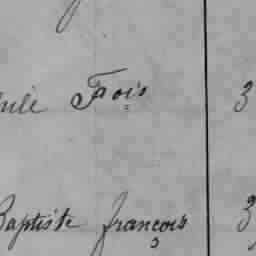 Fois 3
Baptiste françois 3